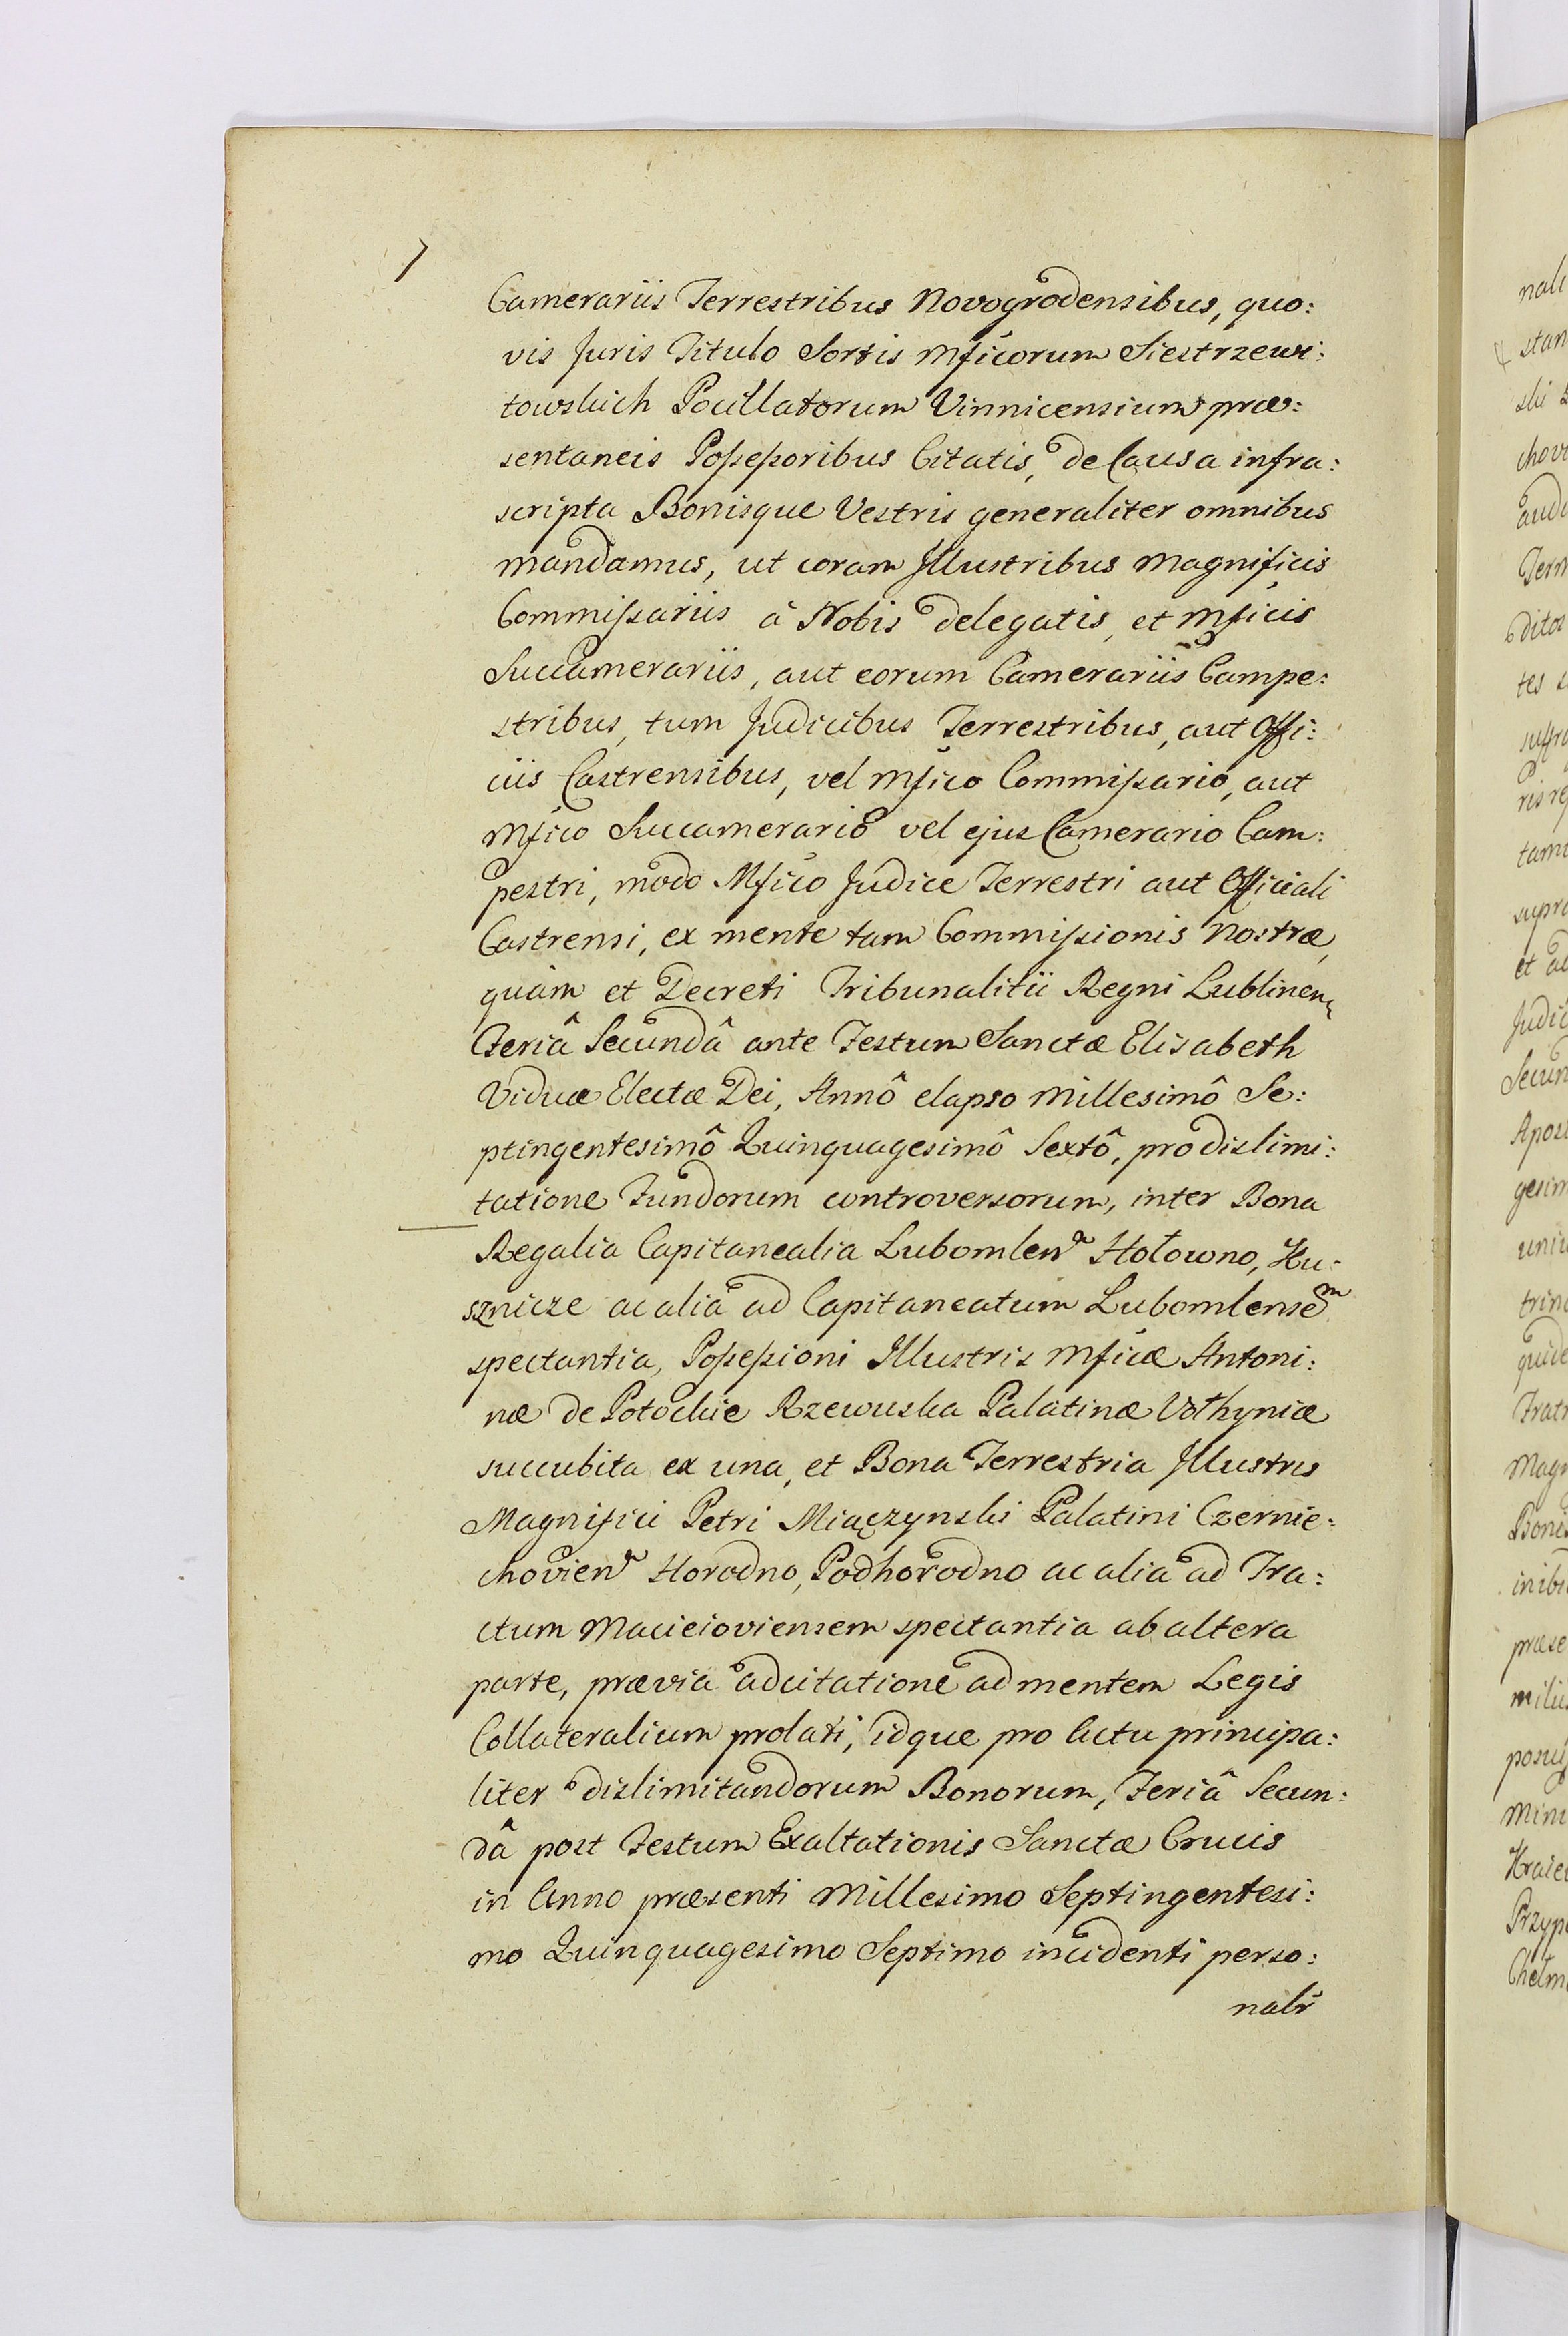 Camerariis Terrestribus Novogrodensibus, quo:
vis Juris Titulo Sortis Mficorum Siestrzewi:
towskich Pocillatorum Vinnicensium præ:
sentaneis Possessoribus Citatis, de Causa infra:
scripta Bonisque Vestris generaliter omnibus
mandamus, ut coram Illustribus Magnificis
Commissariis à Nobis delegatis, et Mficis
Succamerariis, aut eorum Camerariis Campe:
stribus, tum Judicibus Terrestribus, aut Offi:
ciis Castrensibus, vel Mfico Commissario, aut
Mfico Succamerario vel ejus Camerario Cam:
pestri, modo Mfico Judice Terrestri aut Officiali
Castrensi, ex mente tam Commissionis Nostræ,
quàm et Decreti Tribunalitii Regni Lublinen
Feriâ Secundâ ante Festum Sanctæ Elisabeth
Viduæ Electæ Dei, Annô elapso Millesimô Se:
ptingentesimô Quinquagesimô Sextô, pro dislimi:
tatione Fundorum controversorum, inter Bona
Regalia Capitanealia Lubomlen Hołowno, Hu:
sznicze ac alia ad Capitaneatum Lubomlensem
spectantia, Possessioni Illustris Mficæ Antoni:
næ de Potockie Rzewuska Palatinæ Volhyniæ
succubita ex una, et Bona Terrestria Illustris
Magnifici Petri Miączynski Palatini Czernie:
chovien Horodno, Podhorodno ac alia ad Tra:
ctum Macieioviensem spectantia ab altera
parte, prævia adcitatione ad mentem Legis
Collateralium prolati, idque pro Actu principa:
liter dislimitandorum Bonorum, Feriâ Secun:
dâ post Festum Exaltationis Sanctæ Crucis
in Anno præsenti Millesimo Septingentesi:
mo Quinquagesimo Septimo incidenti perso:
nalr